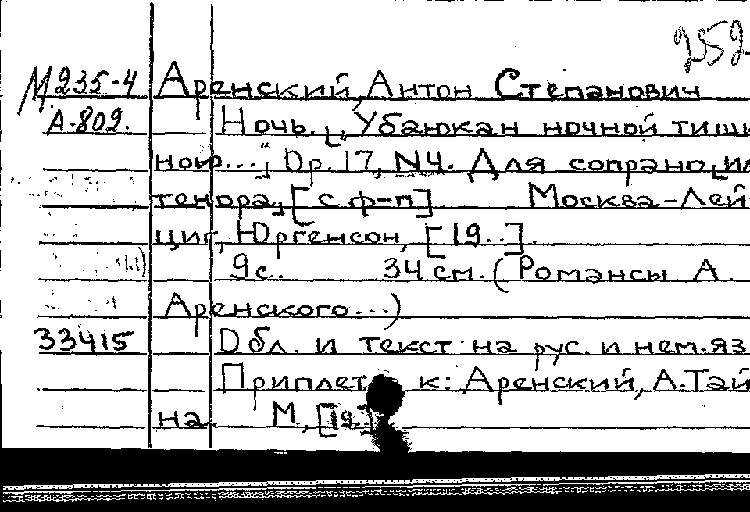 252
М235-4 Аренский, Антон Степанович
А-802. Ночь. [„Убаюкан ночной тиши
ною...“] Op. 17, N4. Для сопрано [ил
тенора] [с ф-п] Москва-Лей
циг, Юргенсон, [19..].
9с. 34 см. (Романсы А.
Аренского...)
33415 Обл. и текст на рус. и нем. яз
Приплет к: Аренский, А. Тай
на. М, [19..]